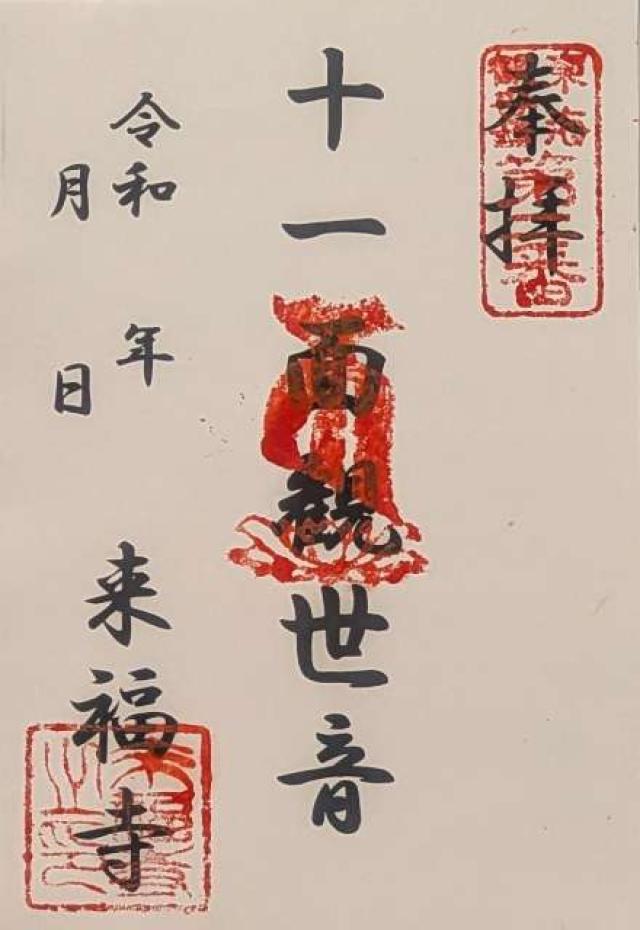 奉拝
十一面観世音
令和 年
月 日
来福寺